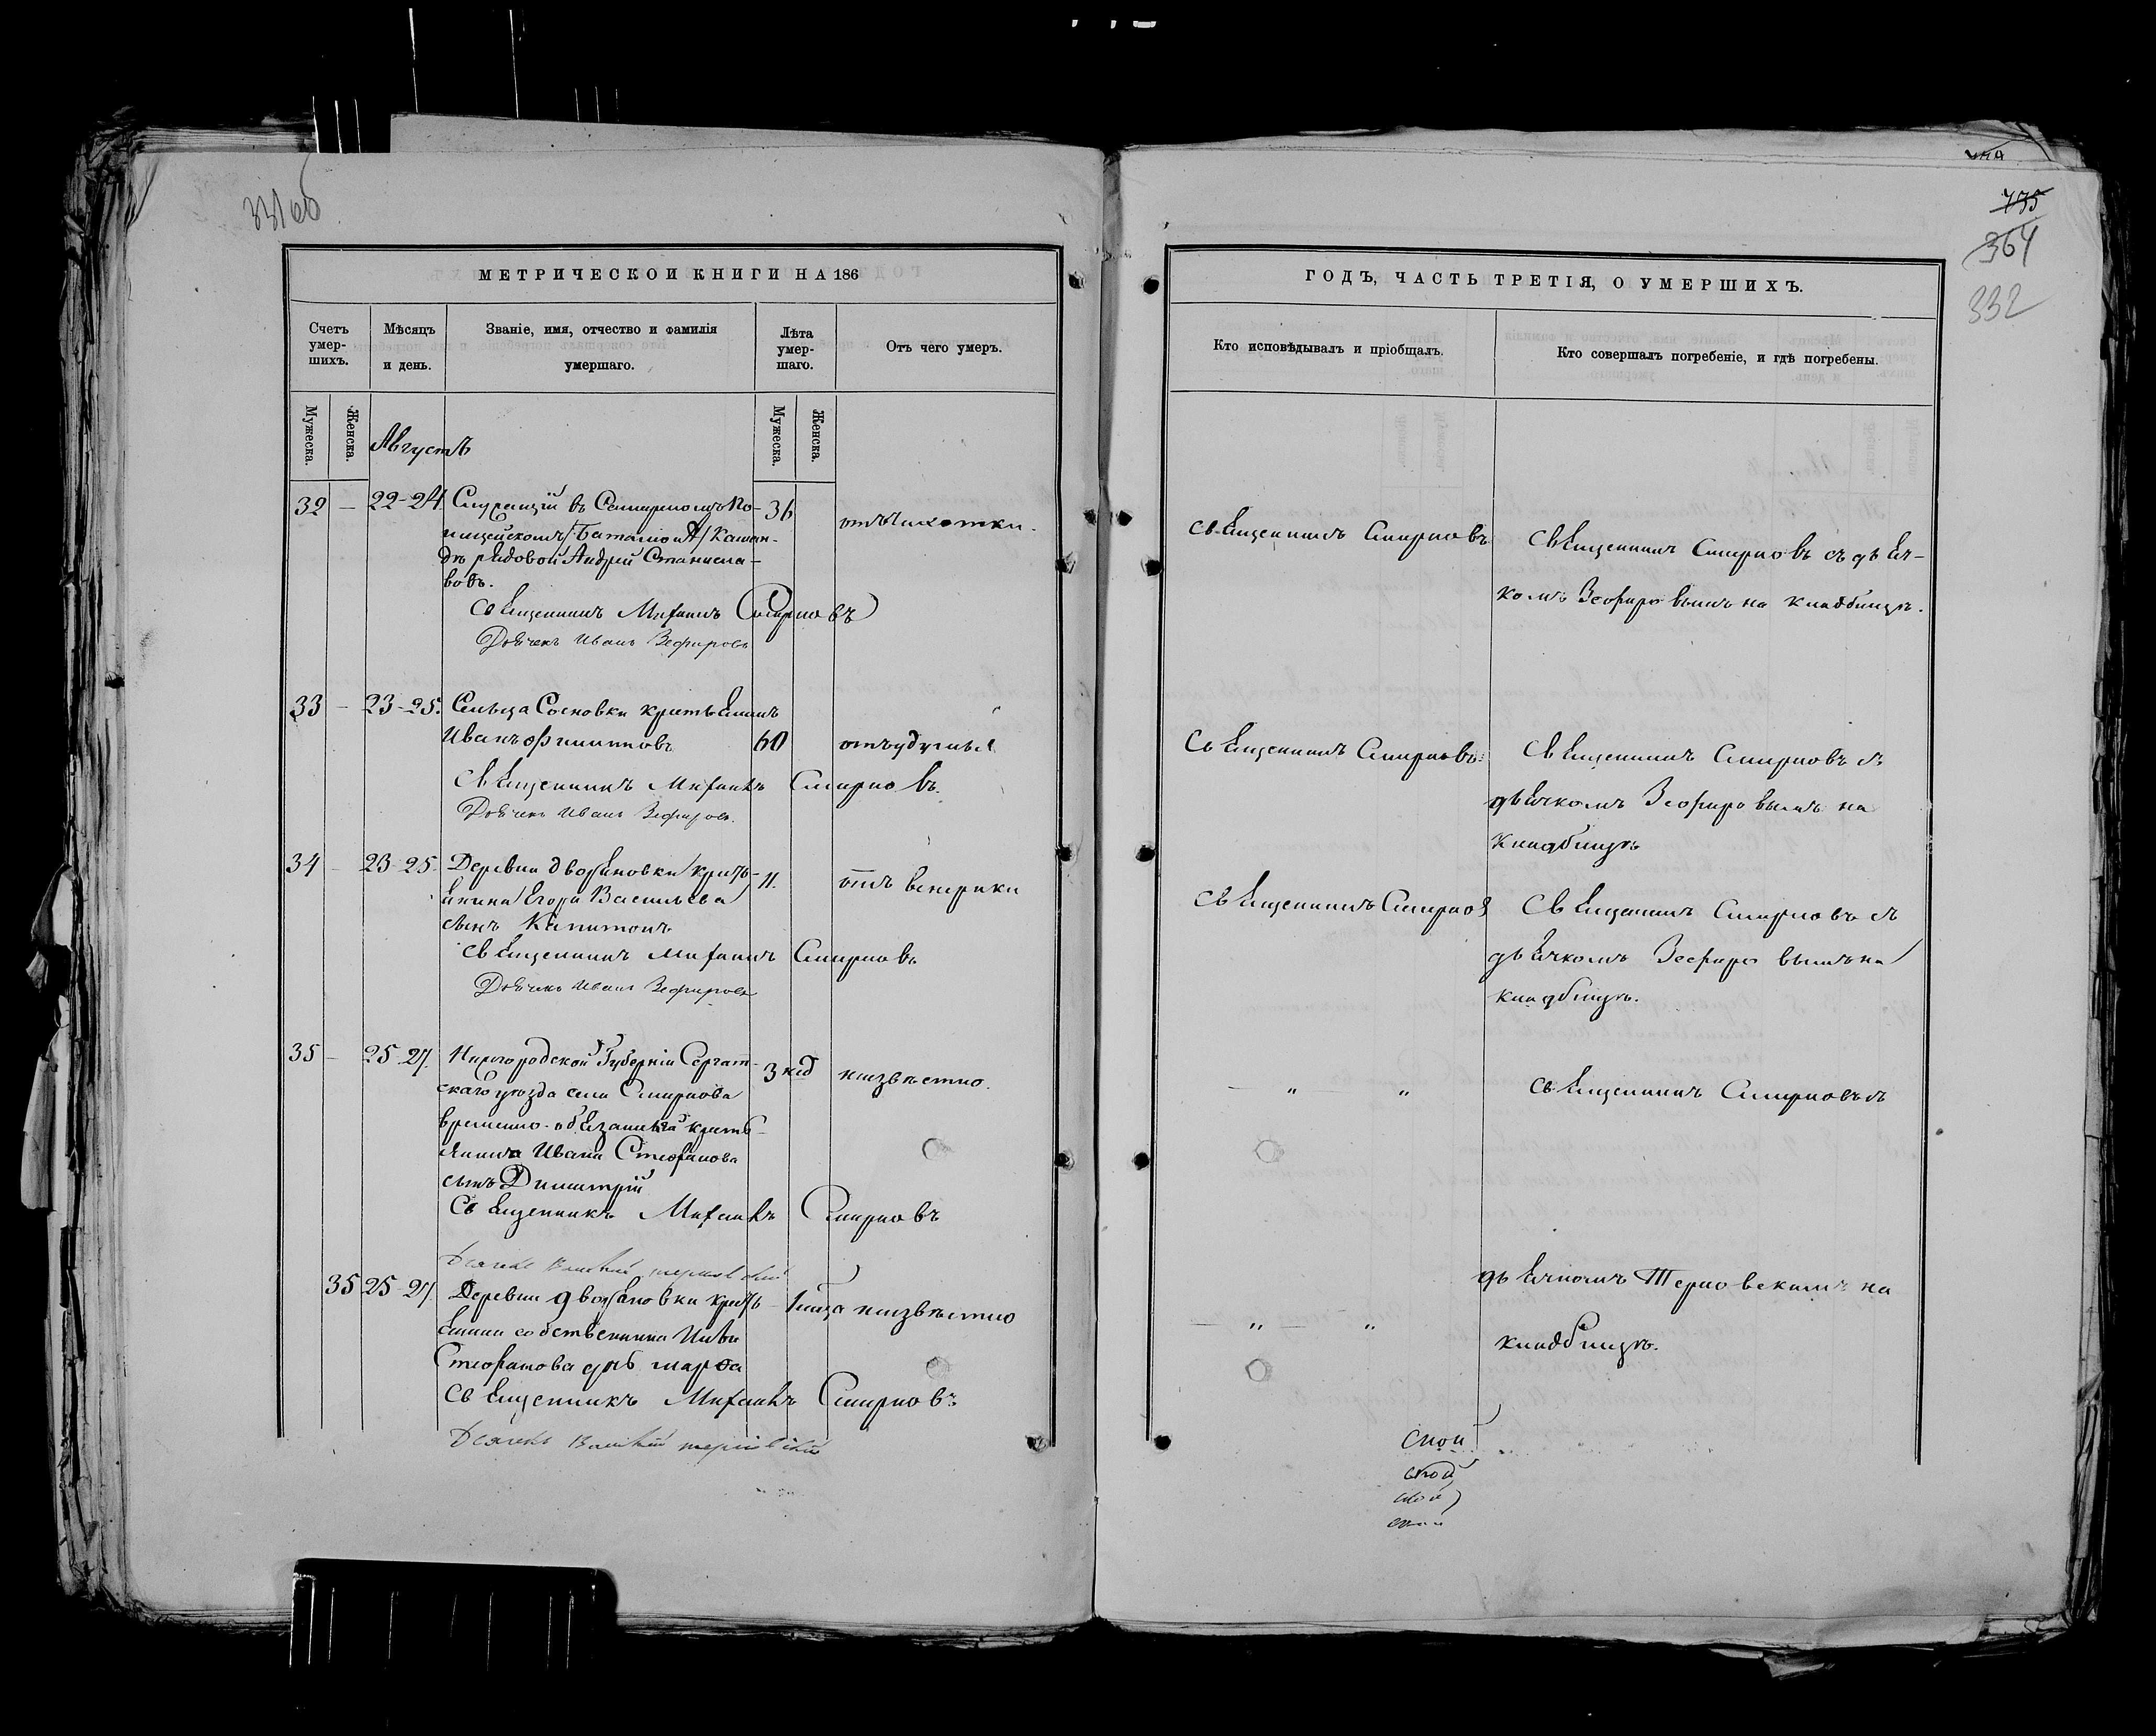 331 об
МЕТРИЧЕСКОЙ КНИГИ НА 186
Счетъ умер-шихъ.
Мѣсяцъ и день.
Званіе, имя, отчество и фамилія умершаго.
Лѣта умер-шаго.
Отъ чего умеръ.
Мужеска.
Женска.
Мужеска.
Женска.
Августъ
32 — 22-24 36 отъ чихотки.
Полицейскомъ
рядовой Андрей Станисла-
вовъ.
Священникъ Михаилъ Смирновъ
Дьячекъ Иванъ Зефировъ
33 — 23-25. Сельца Сосновки крестьянинъ
Иванъ Филиповъ 60 отъ удушья
Священникъ Михаилъ Смирновъ.
Дьячекъ Иванъ Зефировъ.
34 — 23-25. Деревни Дворяновки крестъ- 11.
янина Егора Васильева
сынъ Капитонъ
Священникъ Михаилъ Смирновъ
Дьячекъ Иванъ Зефировъ
35 — 25-27. Нижегородской Губерніи Сергат- 3 нед неизвѣстно.
скаго уѣзда села Смирнова
временно-обязаннаго кресть-
янина Ивана Стефанова
сынъ Димитрій
Священникъ Михаилъ Смирновъ
Дьячекъ Василій Терновскій
35 25-27. Деревни Дворяновки кресть- 1 года неизвѣстно
янина собственника Ильи
Стефанова дчь Марфа
Священникъ Михаилъ Смирновъ
Дьячекъ Василій Терновскій
735
364
332
ГОДЪ, ЧАСТЬ ТРЕТІЯ, О УМЕРШИХЪ.
Кто исповѣдывалъ и пріобщалъ.
Кто совершалъ погребеніе, и гдѣ погребены.
Священникъ Смирновъ
Священникъ Смирновъ съ дьяч-
комъ Зефировымъ на кладбищѣ.
Священникъ Смирновъ
Священникъ Смирновъ съ
дьячкомъ Зефировымъ на
кладбищѣ
Священникъ Смирновъ
Священникъ Смирновъ съ
дьячкомъ Зефировымъ на
кладбищѣ.
— " — "
Священникъ Смирновъ съ
дьячкомъ Терновскимъ на
— " — "
кладбищѣ.